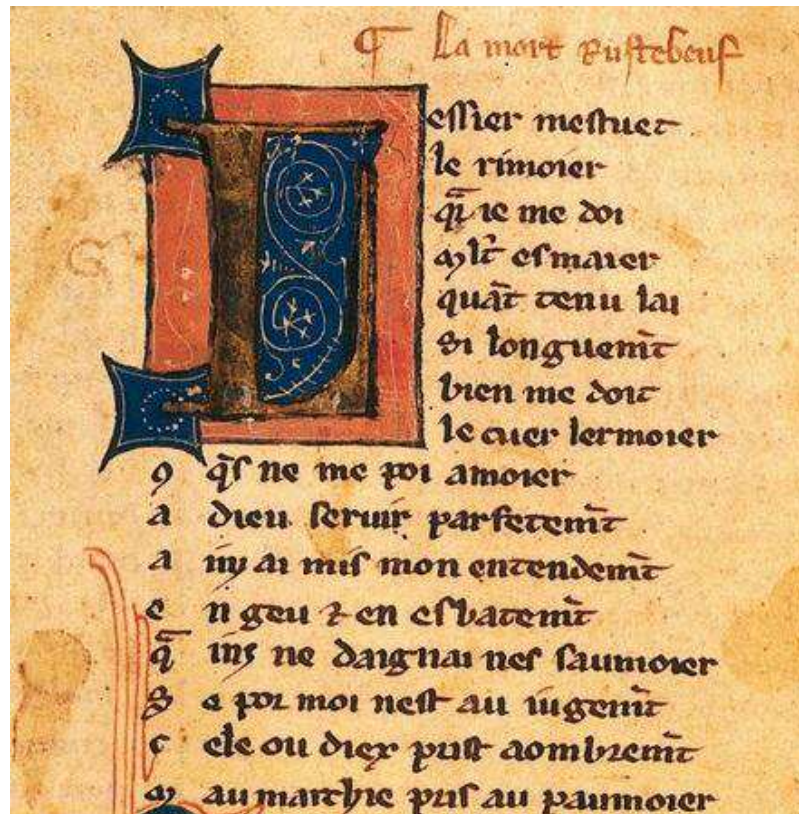 ¶ La mort Rustebeuf
Lessier mestuet
le rimoier
q̄r ie me doi
ml̄t esmaier
quāt tenu lai
si longuem̄t
bien me doit
le cuer lermoier
ꝯ q̄s ne me poi amoier
a dieu seruir parfetem̄t
a inz ai mis mon entendem̄t
e n geu ⁊ en esbatem̄t
q̄ inz ne daignai nes saumoier
s e por moi nest au iugem̄t
c ele ou diex prist aombrem̄t
m au marchie pris au paumoier